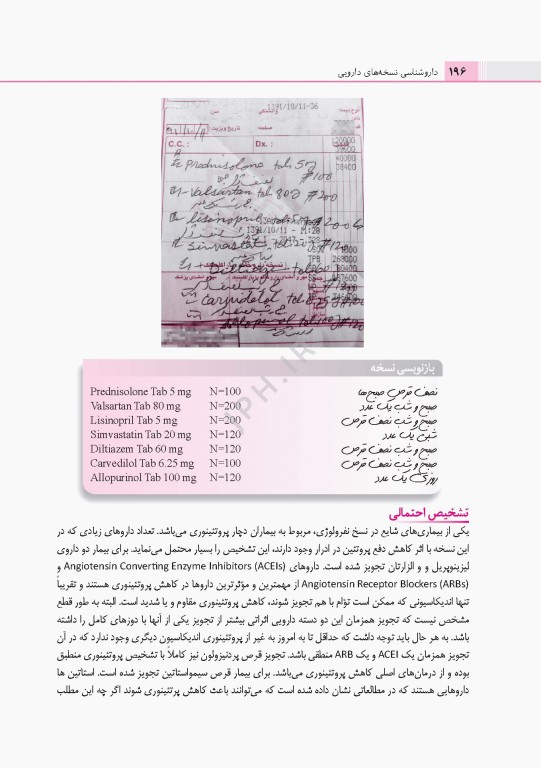 ۱۹۶ داروشناسی نسخه‌های دارویی
1391/10/11-36
تاریخ ویزیت
C.C. : Dx. :
Prednisolone tab 5 #100
2-Valsartan tab 80 #200
lisinopril #200
1391/10/11 - 11:28
simvastat tab 20 #120
Diltiazem tab 60
carvedelol tab 6.25 #100
allopurinol tab 100 #120
بازنویسی نسخه
Prednisolone Tab 5 mg N=100 نصف قرص صبح‌ها
Valsartan Tab 80 mg N=200 صبح و شب یک عدد
Lisinopril Tab 5 mg N=200 صبح و شب نصف قرص
Simvastatin Tab 20 mg N=120 شبی یک عدد
Diltiazem Tab 60 mg N=120 صبح و شب نصف قرص
Carvedilol Tab 6.25 mg N=100 صبح و شب نصف قرص
Allopurinol Tab 100 mg N=120 روزی یک عدد
تشخیص احتمالی
یکی از بیماری‌های شایع در نسخ نفرولوژی، مربوط به بیماران دچار پروتئینوری می‌باشد. تعداد داروهای زیادی که در
این نسخه با اثر کاهش دفع پروتئین در ادرار وجود دارند، این تشخیص را بسیار محتمل می‌نماید. برای بیمار دو داروی
لیزینوپریل و و الزارتان تجویز شده است. داروهای Angiotensin Converting Enzyme Inhibitors (ACEIs) و
Angiotensin Receptor Blockers (ARBs) از مهمترین و مؤثرترین داروها در کاهش پروتئینوری هستند و تقریباً
تنها اندیکاسیونی که ممکن است توأم با هم تجویز شوند، کاهش پروتئینوری مقاوم و یا شدید است. البته به طور قطع
مشخص نیست که تجویز همزمان این دو دسته دارویی اثراتی بیشتر از تجویز یکی از آنها با دوزهای کامل را داشته
باشد. به هر حال باید توجه داشت که حداقل تا به امروز به غیر از پروتئینوری اندیکاسیون دیگری وجود ندارد که در آن
تجویز همزمان یک ACEI و یک ARB منطقی باشد. تجویز قرص پردنیزولون نیز کاملاً با تشخیص پروتئینوری منطبق
بوده و از درمان‌های اصلی کاهش پروتئینوری می‌باشد. برای بیمار قرص سیمواستاتین تجویز شده است. استاتین ها
داروهایی هستند که در مطالعاتی نشان داده شده است که می‌توانند باعث کاهش پرتئینوری شوند اگر چه این مطلب